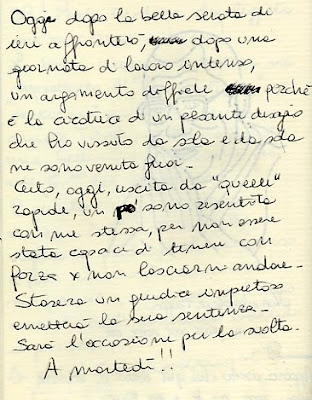 Oggi dopo la bella serata di
ieri affronterò, dopo una
giornata di lavoro intenso,
un argomento difficile perché
è la cicatrice di un pesante disagio
che ho vissuto da sola e da sola
ne sono venuta fuori.
Certo, oggi, uscita da "quelle"
rapide, un pò sono risentita
con me stessa, per non essere
stata capace di tenere con
forza x non lasciarmi andare.
Stasera un giudice impietoso
emetterà la sua sentenza.
Sarà l'occasione per la svolta.
A martedì!!